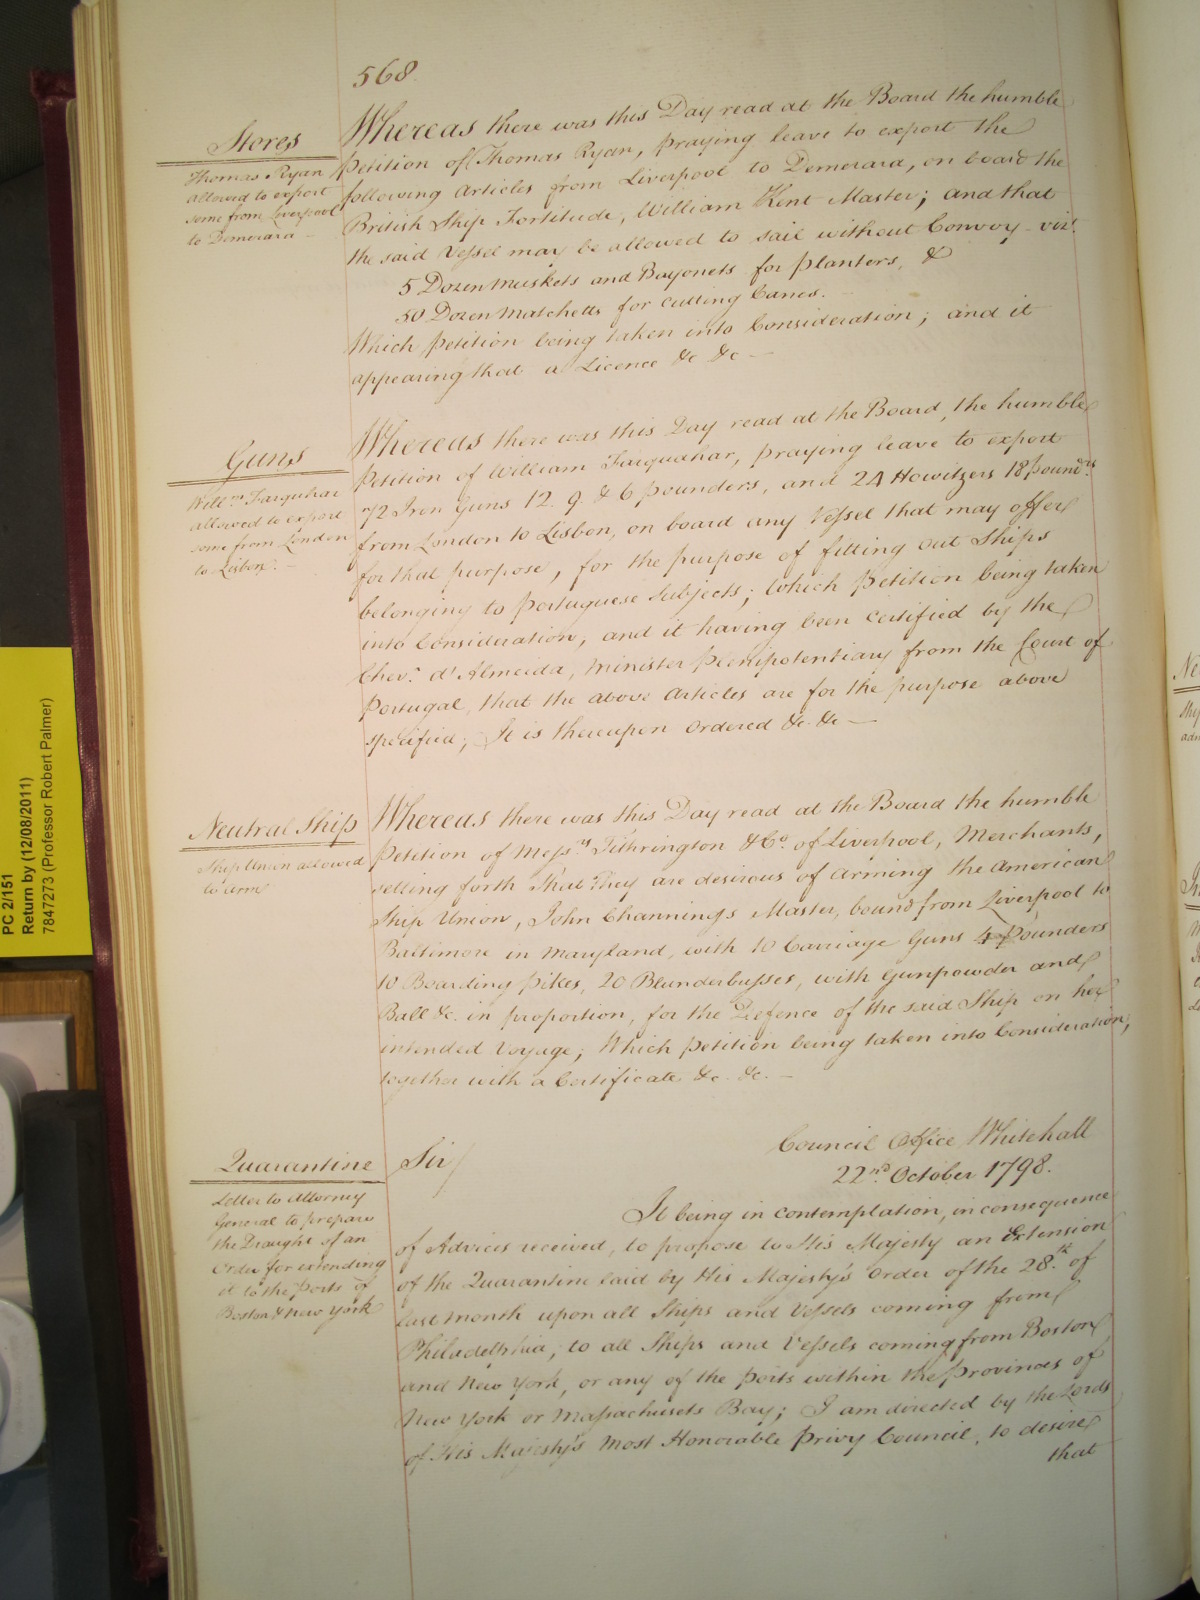 568.
Stores
Thomas Ryan
allowed to export
some from Liverpool
to Demerara —
Whereas there was this Day read at the Board the humble
Petition of Thomas Ryan, praying leave to export the
following Articles from Liverpool to Demerara, on board the
British Ship Fortitude, William Kent Master; and that
the said Vessel may be allowed to sail without Convoy - vizt.
5 Dozen Muskets and Bayonets for Planters, &
50 Dozen Matchetts for cutting Canes.
Which Petition being taken into Consideration; and it
appearing that a Licence &c &c —
Guns
Willm. Farquhar
allowed to export
some from London
to Lisbon. —
Whereas there was this Day read at the Board, the humble
Petition of William Farquahar, praying leave to export
72 Iron Guns 12. 9. & 6 pounders, and 24 Howitzers 18 pounders.
from London to Lisbon, on board any Vessel that may offer
for that purpose, for the purpose of fitting out Ships
belonging to Portuguese Subjects; Which Petition being taken
into Consideration, and it having been certified by the
Chevr. d'Almeida, Minister Plenipotentiary from the Court of
Portugal, that the above Articles are for the purpose above
specified; It is thereupon Ordered &c. &c —
Neutral Ship
Ship Union allowed
to arm
Whereas there was this Day read at the Board the humble
Petition of Messrs. Tithrington & Co. of Liverpool, Merchants,
setting forth That They are desirous of arming the American
Ship Union, John Channings Master, bound from Liverpool to
Baltimore in Maryland, with 10 Carriage Guns 4 Pounders
10 Boarding Pikes, 20 Blunderbusses, with Gunpowder and
Ball &c. in proportion, for the Defence of the said Ship on her
intended Voyage; Which Petition being taken into Consideration,
together with a Certificate &c. &c. —
Quarantine
Letter to Attorney
General to prepare
the Draught of an
Order for extending
it to the Ports of
Boston & New York
Sir/
Council Office Whitehall
22nd. October 1798.
It being in contemplation, in consequence
of Advices received, to propose to His Majesty an Extension
of the Quarantine laid by His Majesty's Order of the 28th. of
last month upon all Ships and Vessels coming from
Philadelphia, to all Ships and Vessels coming from Boston
and New York, or any of the Ports within the Provinces of
New York or Massachusets Bay; I am directed by the Lords
of His Majesty's Most Honorable Privy Council, to desire
that
PC 2/151
Return by (12/08/2011)
7847273 (Professor Robert Palmer)